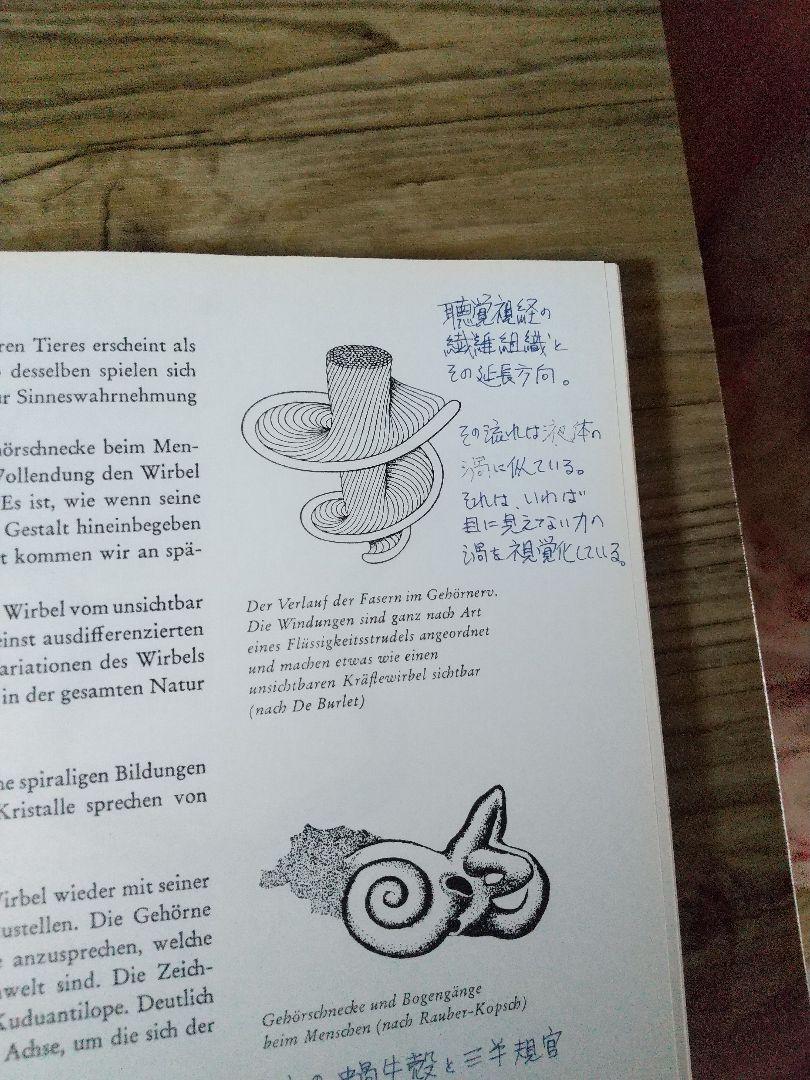 ren Tieres erscheint als
desselben spielen sich
ur Sinneswahrnehmung
hörschnecke beim Men-
Vollendung den Wirbel
Es ist, wie wenn seine
Gestalt hineinbegeben
t kommen wir an spä-
Wirbel vom unsichtbar
einst ausdifferenzierten
ariationen des Wirbels
in der gesamten Natur
ne spiraligen Bildungen
Kristalle sprechen von
Wirbel wieder mit seiner
ustellen. Die Gehörne
anzusprechen, welche
nwelt sind. Die Zeich-
Kuduantilope. Deutlich
Achse, um die sich der
聴覚視経の
繊維組織と
その延長方向。
その流れは液体の
渦に似ている。
それは、いわば
目に見えてない力の
渦を視覚化している。
Der Verlauf der Fasern im Gehörnerv.
Die Windungen sind ganz nach Art
eines Flüssigkeitsstrudels angeordnet
und machen etwas wie einen
unsichtbaren Kräftewirbel sichtbar
(nach De Burlet)
Gehörschnecke und Bogengänge
beim Menschen (nach Rauber-Kopsch)
の蝸牛殻と三半規官